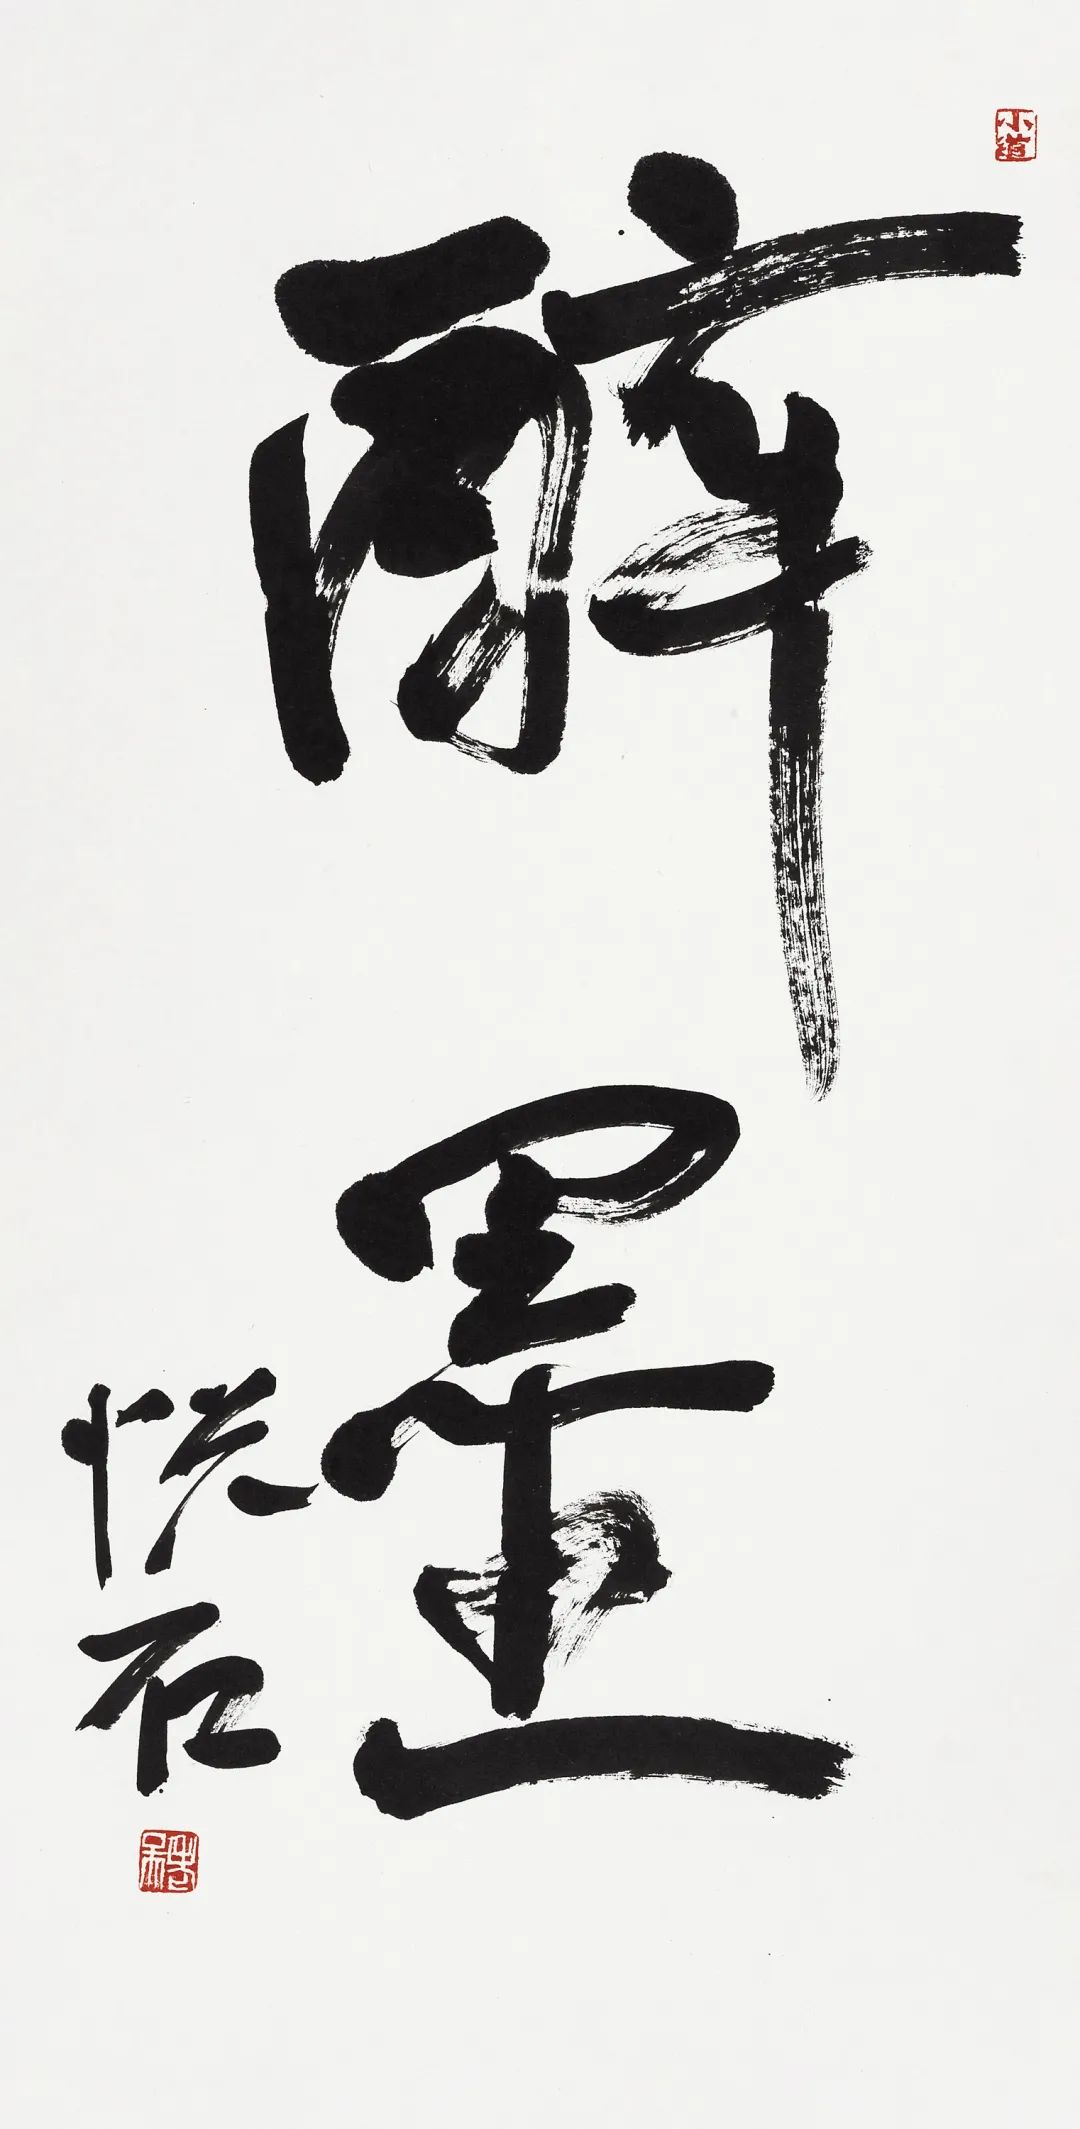 小道
醉墨
悦石